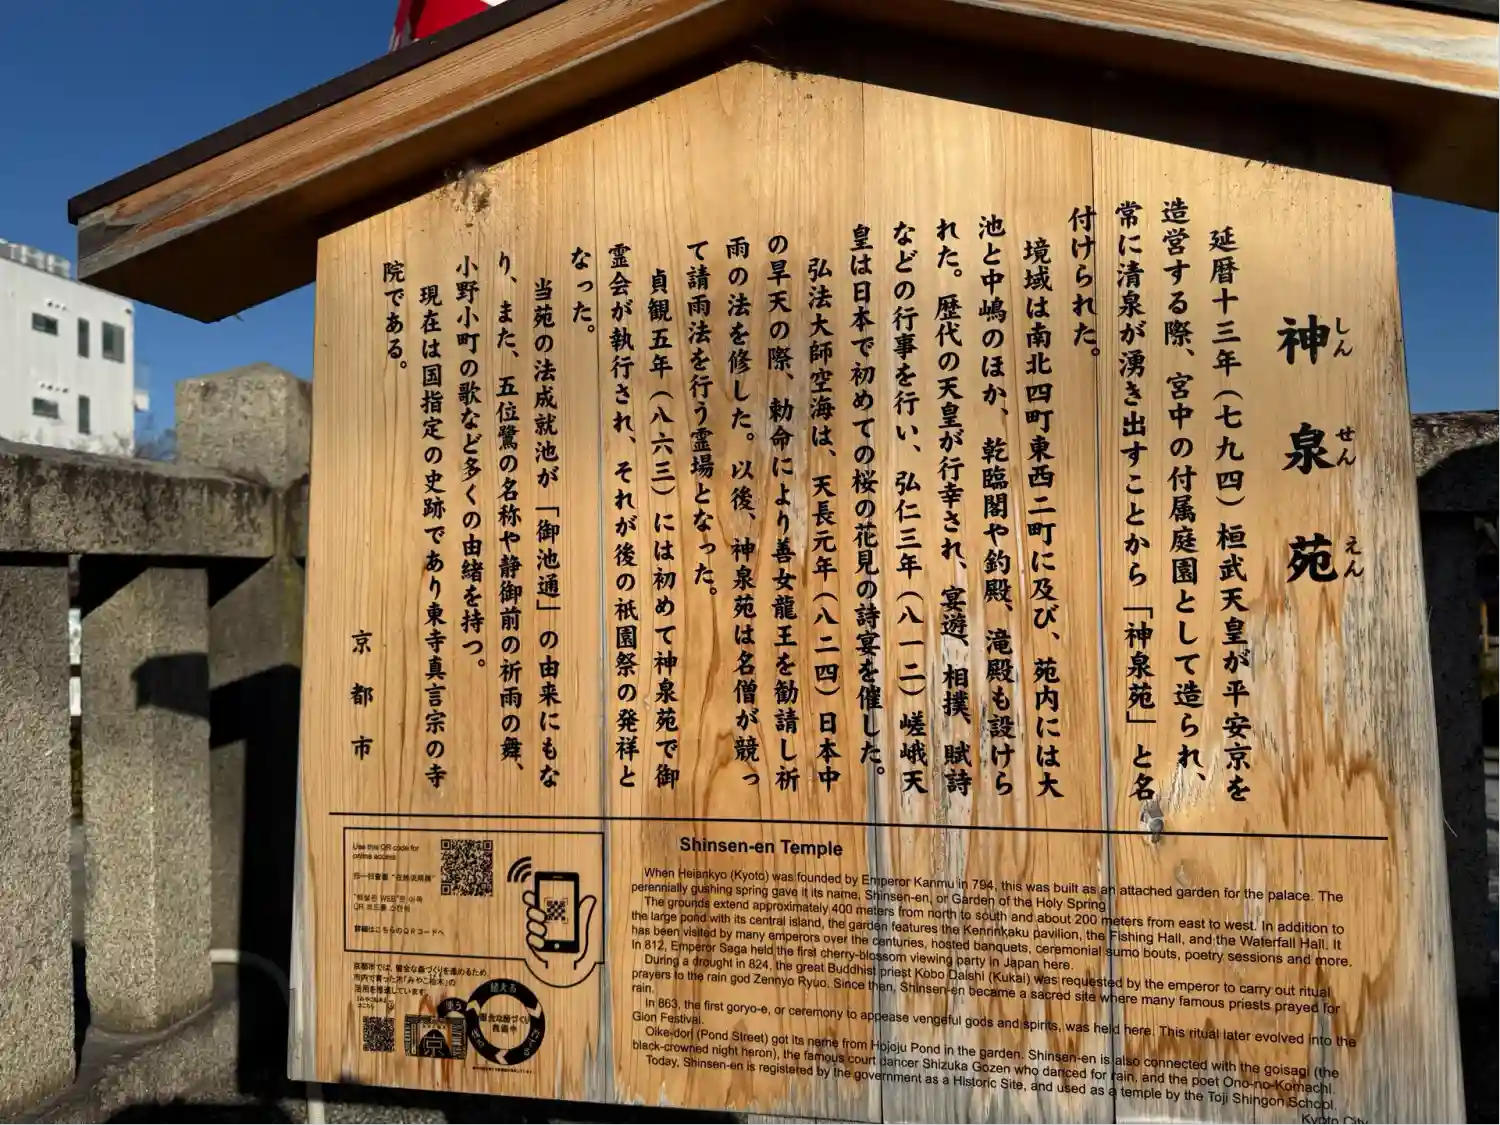 神泉苑
しんせんえん
延暦十三年（七九四）桓武天皇が平安京を
造営する際、宮中の付属庭園として造られ、
常に清泉が湧き出すことから「神泉苑」と名
付けられた。
境域は南北四町東西二町に及び、苑内には大
池と中嶋のほか、乾臨閣や釣殿、滝殿も設けら
れた。歴代の天皇が行幸され、宴遊、相撲、賦詩
などの行事を行い、弘仁三年（八一二）嵯峨天
皇は日本で初めての桜の花見の詩宴を催した。
弘法大師空海は、天長元年（八二四）日本中
の旱天の際、勅命により善女龍王を勧請し祈
雨の法を修した。以後、神泉苑は名僧が競っ
て請雨法を行う霊場となった。
貞観五年（八六三）には初めて神泉苑で御
霊会が執行され、それが後の祇園祭の発祥と
なった。
当苑の法成就池が「御池通」の由来にもな
り、また、五位鷺の名称や静御前の祈雨の舞、
小野小町の歌など多くの由緒を持つ。
現在は国指定の史跡であり東寺真言宗の寺
院である。
京都市
Shinsen-en Temple
When Heiankyo (Kyoto) was founded by Emperor Kanmu in 794, this was built as an attached garden for the palace. The
perennially gushing spring gave it its name, Shinsen-en, or Garden of the Holy Spring.
The grounds extend approximately 400 meters from north to south and about 200 meters from east to west. In addition to
the large pond with its central island, the garden features the Kenrinkaku pavilion, the Fishing Hall, and the Waterfall Hall. It
has been visited by many emperors over the centuries, hosted banquets, ceremonial sumo bouts, poetry sessions and more.
In 812, Emperor Saga held the first cherry-blossom viewing party in Japan here.
During a drought in 824, the great Buddhist priest Kobo Daishi (Kukai) was requested by the emperor to carry out ritual
prayers to the rain god Zennyo Ryuo. Since then, Shinsen-en became a sacred site where many famous priests prayed for
rain.
In 863, the first goryo-e, or ceremony to appease vengeful gods and spirits, was held here. This ritual later evolved into the
Gion Festival.
Oike-dori (Pond Street) got its name from Hojoju Pond in the garden. Shinsen-en is also connected with the goisagi (the
black-crowned night heron), the famous court dancer Shizuka Gozen who danced for rain, and the poet Ono-no-Komachi.
Today, Shinsen-en is registered by the government as a Historic Site, and used as a temple by the Toji Shingon School.
Kyoto City
Use this QR code for
online access
詳細はこちらのQRコードへ
京都市では、健全な森づくりを進めるため、
市内で育った木「みやこ杣木」の
活用を推進しています。
植える
使う